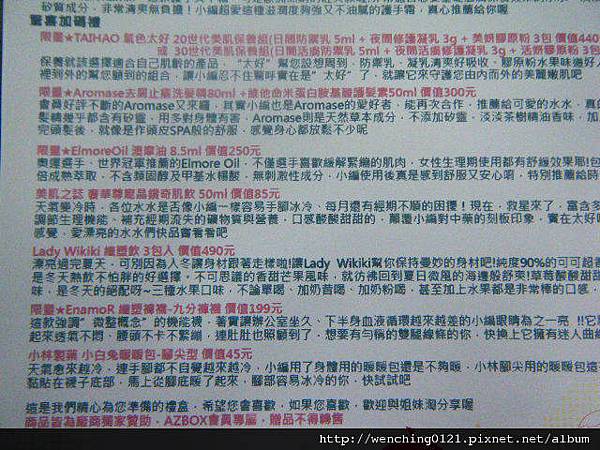 矽質成分，非常清爽無負擔！小編愛這種滋潤度夠強又不油膩的護手霜，真心推薦給你喔
驚喜加碼禮
限量★TAIHAO 氣色太好 20世代美肌保養組(日間防禦乳 5ml + 夜間修護凝乳 3g + 美妍膠原粉 3包 價值440
或 30世代美肌保養組(日間活膚防禦乳 5ml + 夜間活膚修護凝乳 3g + 活妍膠原粉 3包
保養就該選擇適合自己肌齡的產品，“太好”幫您設想周到，防禦乳、凝乳清爽好吸收，膠原粉水果味道好入
裡到外的幫您顧到的組合，讓小編忍不住驚呼實在是“太好”了，就讓它來守護您由內而外的美麗嫩肌吧
限量★Aromase去屑止癢洗髮精80ml +維他命米蛋白胺基酸護髮素50ml 價值300元
會員好評不斷的Aromase又來囉，其實小編也是Aromase的愛好者，能再次合作，推薦給可愛的水水，真的
髮精幾乎都含有矽靈，用多對身體有害，Aromase則是天然草本成分，不添加矽靈，淡淡茶樹精油香味，加
完頭髮後，就像是作頭皮SPA般的舒服，感覺身心都放鬆不少呢
限量★ElmoreOil 澳摩油 8.5ml 價值250元
奧運選手、世界冠軍推薦的Elmore Oil，不僅選手喜歡緩解緊繃的肌肉，女性生理期使用都有舒緩效果耶!包
倍成熟萃取，不含類固醇及甲基水楊酸，無刺激性成分，小編使用後真是感到舒服又安心唷，特別推薦給時
美肌之誌 奢華尊寵晶鑽奇肌飲 50ml 價值85元
天氣變冷時，各位水水是否像小編一樣容易手腳冰冷、每月還有經期不順的困擾！現在，救星來了，富含多
調節生理機能、補充經期流失的礦物質與營養，口感酸酸甜甜的，顛覆小編對中藥的刻板印象，實在太好喝
感覺，愛漂亮的水水們快品嘗看看吧
Lady Wikiki 纖塑飲 3包入 價值490元
漂亮過完夏天，可別因為入冬讓身材跟著走樣啦!讓Lady Wikiki幫你保持曼妙的身材吧!純度90%的可可超香
是冬天熱飲不怕胖的好選擇。不可思議的香甜芒果風味，就彷彿回到夏日微風的海邊般舒爽!草莓酸酸甜甜
味，是冬天的絕配呀~三種水果口味，不論單喝、加奶昔喝、加奶粉喝，甚至加上水果都是非常棒的口感，
限量★EnamoR 纖塑褲襪-九分褲襪 價值199元
這款強調“微整概念”的機能襪，著實讓辦公室坐久、下半身血液循環越來越差的小編眼睛為之一亮 !!它
起來透氣不悶、腰頭不卡不緊繃，連肚肚也照顧到了，想要有勻稱的雙腿線條的你，快換上它擁有迷人曲線
小林製藥 小白兔暖暖包-腳尖型 價值45元
天氣愈來越冷，連手腳都不自覺越來越冷，小編用了身體用的暖暖包還是不夠暖，小林腳尖用的暖暖包這
黏貼在襪子底部，馬上從腳底暖了起來，腳部容易冰冷的你，快試試吧
這是我們精心為您準備的禮盒，希望您會喜歡，如果您喜歡，歡迎與姐妹淘分享喔
商品皆為廠商獨家贊助，AZBOX會員專屬，贈品不得轉售
http://wenching0121.pixnet.net/album